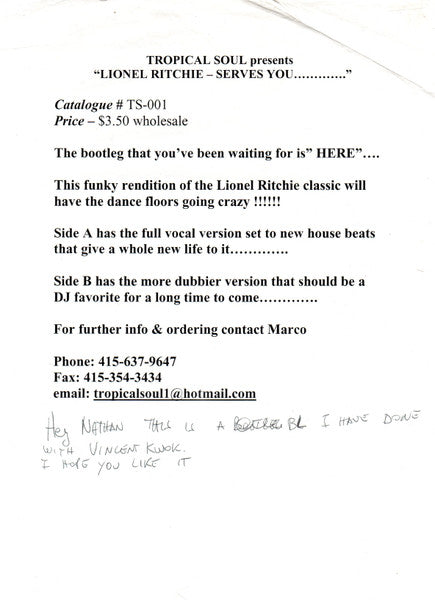 TROPICAL SOUL presents
“LIONEL RITCHIE – SERVES YOU………….”
Catalogue # TS-001
Price – $3.50 wholesale
The bootleg that you’ve been waiting for is” HERE”….
This funky rendition of the Lionel Ritchie classic will
have the dance floors going crazy !!!!!!
Side A has the full vocal version set to new house beats
that give a whole new life to it………….
Side B has the more dubbier version that should be a
DJ favorite for a long time to come…………..
For further info & ordering contact Marco
Phone: 415-637-9647
Fax: 415-354-3434
email: tropicalsoul1@hotmail.com
Hey NATHAN THIS IS A BL I HAVE DONE
WITH VINCENT KWOK.
I HOPE YOU LIKE IT